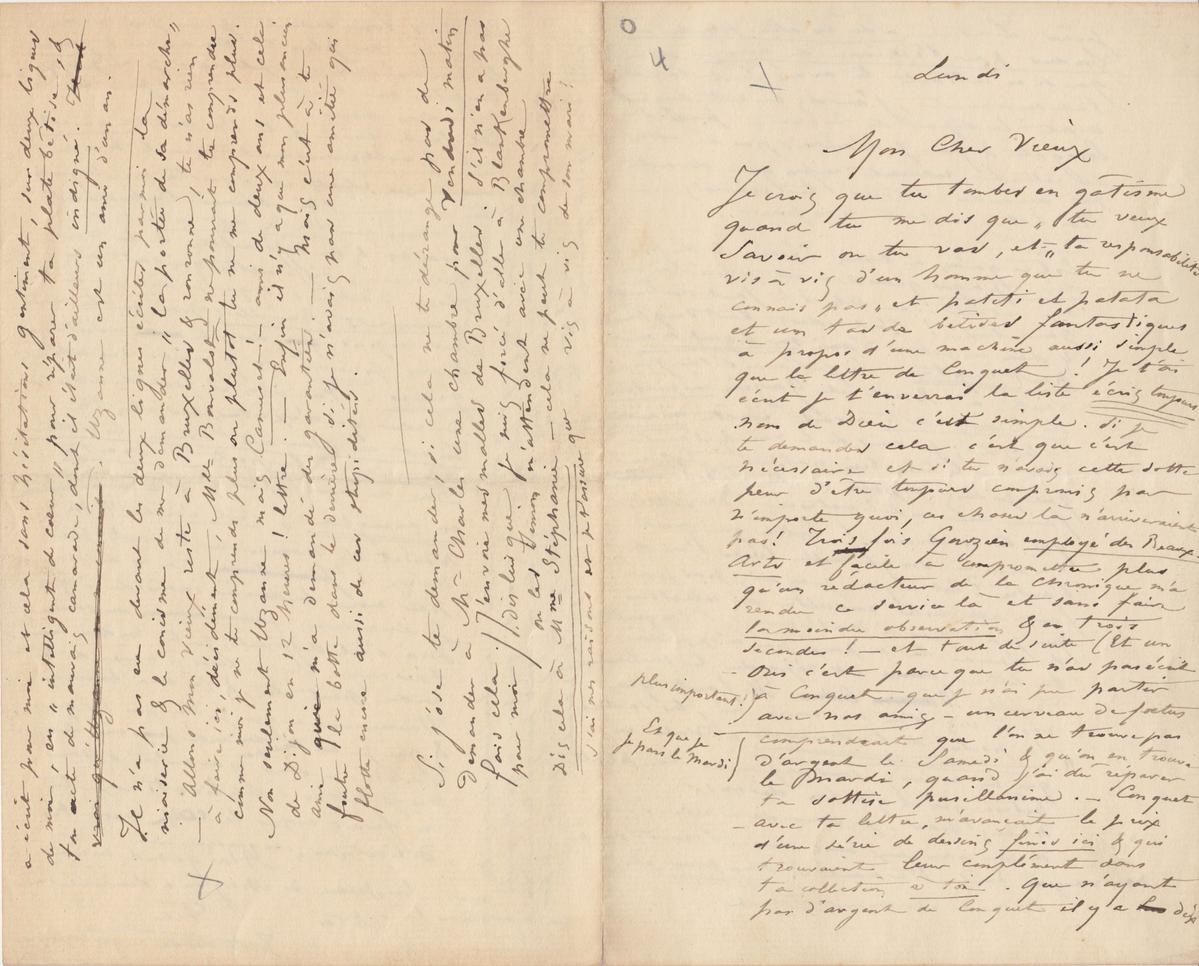 Lundi
Mon Cher Vieux
Je crois que tu tombes en gâtisme
quand tu me dis que „ tu veux
savoir ou tu vas, et „ ta responsabilité
vis à vis d'un homme que tu ne
connais pas „ et patati et patata
et un tas de bêtises fantastiques
à propos d'une machine aussi simple
que la lettre de Conquet ! Je t'ai
écrit je t'enverrai la liste écris toujours
nom de Dieu c'est simple. Si je
te demandes cela c'est que c'est
nécessaire et si tu n'avais cette sotte
peur d'être toujours compromis par
n'importe quoi, ces choses là n'arriveraient
pas! Trois fois Gouzien employé des Beaux
Arts et facile à compromettre plus
qu'un rédacteur de la Chronique m'a
rendu ce service là et sans faire
la moindre observation & en trois
secondes ! — et tout de suite (Et un
- Oui c'est parce que tu n'as pas écrit
plus important!)
à Conquet que je n'ai pu partir
avec nos amis — un cerveau de foetus
Est que je
je pars le Mardi
comprendrait que l'on ne trouve pas
d'argent le Samedi & qu'on en trouve
le Mardi, quand j'ai dû réparer
ta sottise pusillanime. — Conquet
- avec ta lettre, m'avançait le prix
d'une série de dessins finis ici & qui
trouvaient leur complément dans
ta collection à toi. Que n'ayant
pas d'argent de Conquet il y a déjà
a écrit pour moi et cela sans hésitations gentiment, sur deux lignes
de moi, en „ intelligent de coeur „ pour réparer ta plate bêtise, &
ton acte de mauvais camarade, dont il était d'ailleurs indigné.
Uzanne est un ami d'un an.
Il n'a pas eu devant les deux lignes écrites par moi la
niaiserie & le conisme de me demander „ la portée de sa démarche „
— Allons mon vieux reste à Bruxelles & ronronne, tu n'as rien
à faire ici, décidément, Mr Bonvalet ne pourrait te comprendre
comme moi je ne te comprends plus ou plutot tu ne me comprends plus.
Non seulement Uzanne mais Camuset! — amis de deux ans et cela
de Dijon en 12 heures ! lettre. — Enfin il n'y a que mon plus ancien
ami m'a demandé des garanties. — Mais c'est à te
foutre la botte dans le derrière si je n'avais pas une amitié qui
flotte mieux aussi de ces stupidités.
Si j'ose te demander, si cela ne te dérange pas de
demander à Mr Charles une chambre pour Vendredi matin
fais cela. J'envoie mes malles de Bruxelles. S'il n'en a pas
pour moi / Dis le que je suis forcé d'aller à Blankenberghe
ou les m'attendent avec une chambre
Dis cela à Mme Stéphanie — cela ne peut te compromettre
J'ai mes raisons et je t'assure que vis à vis de son mari!
O
4